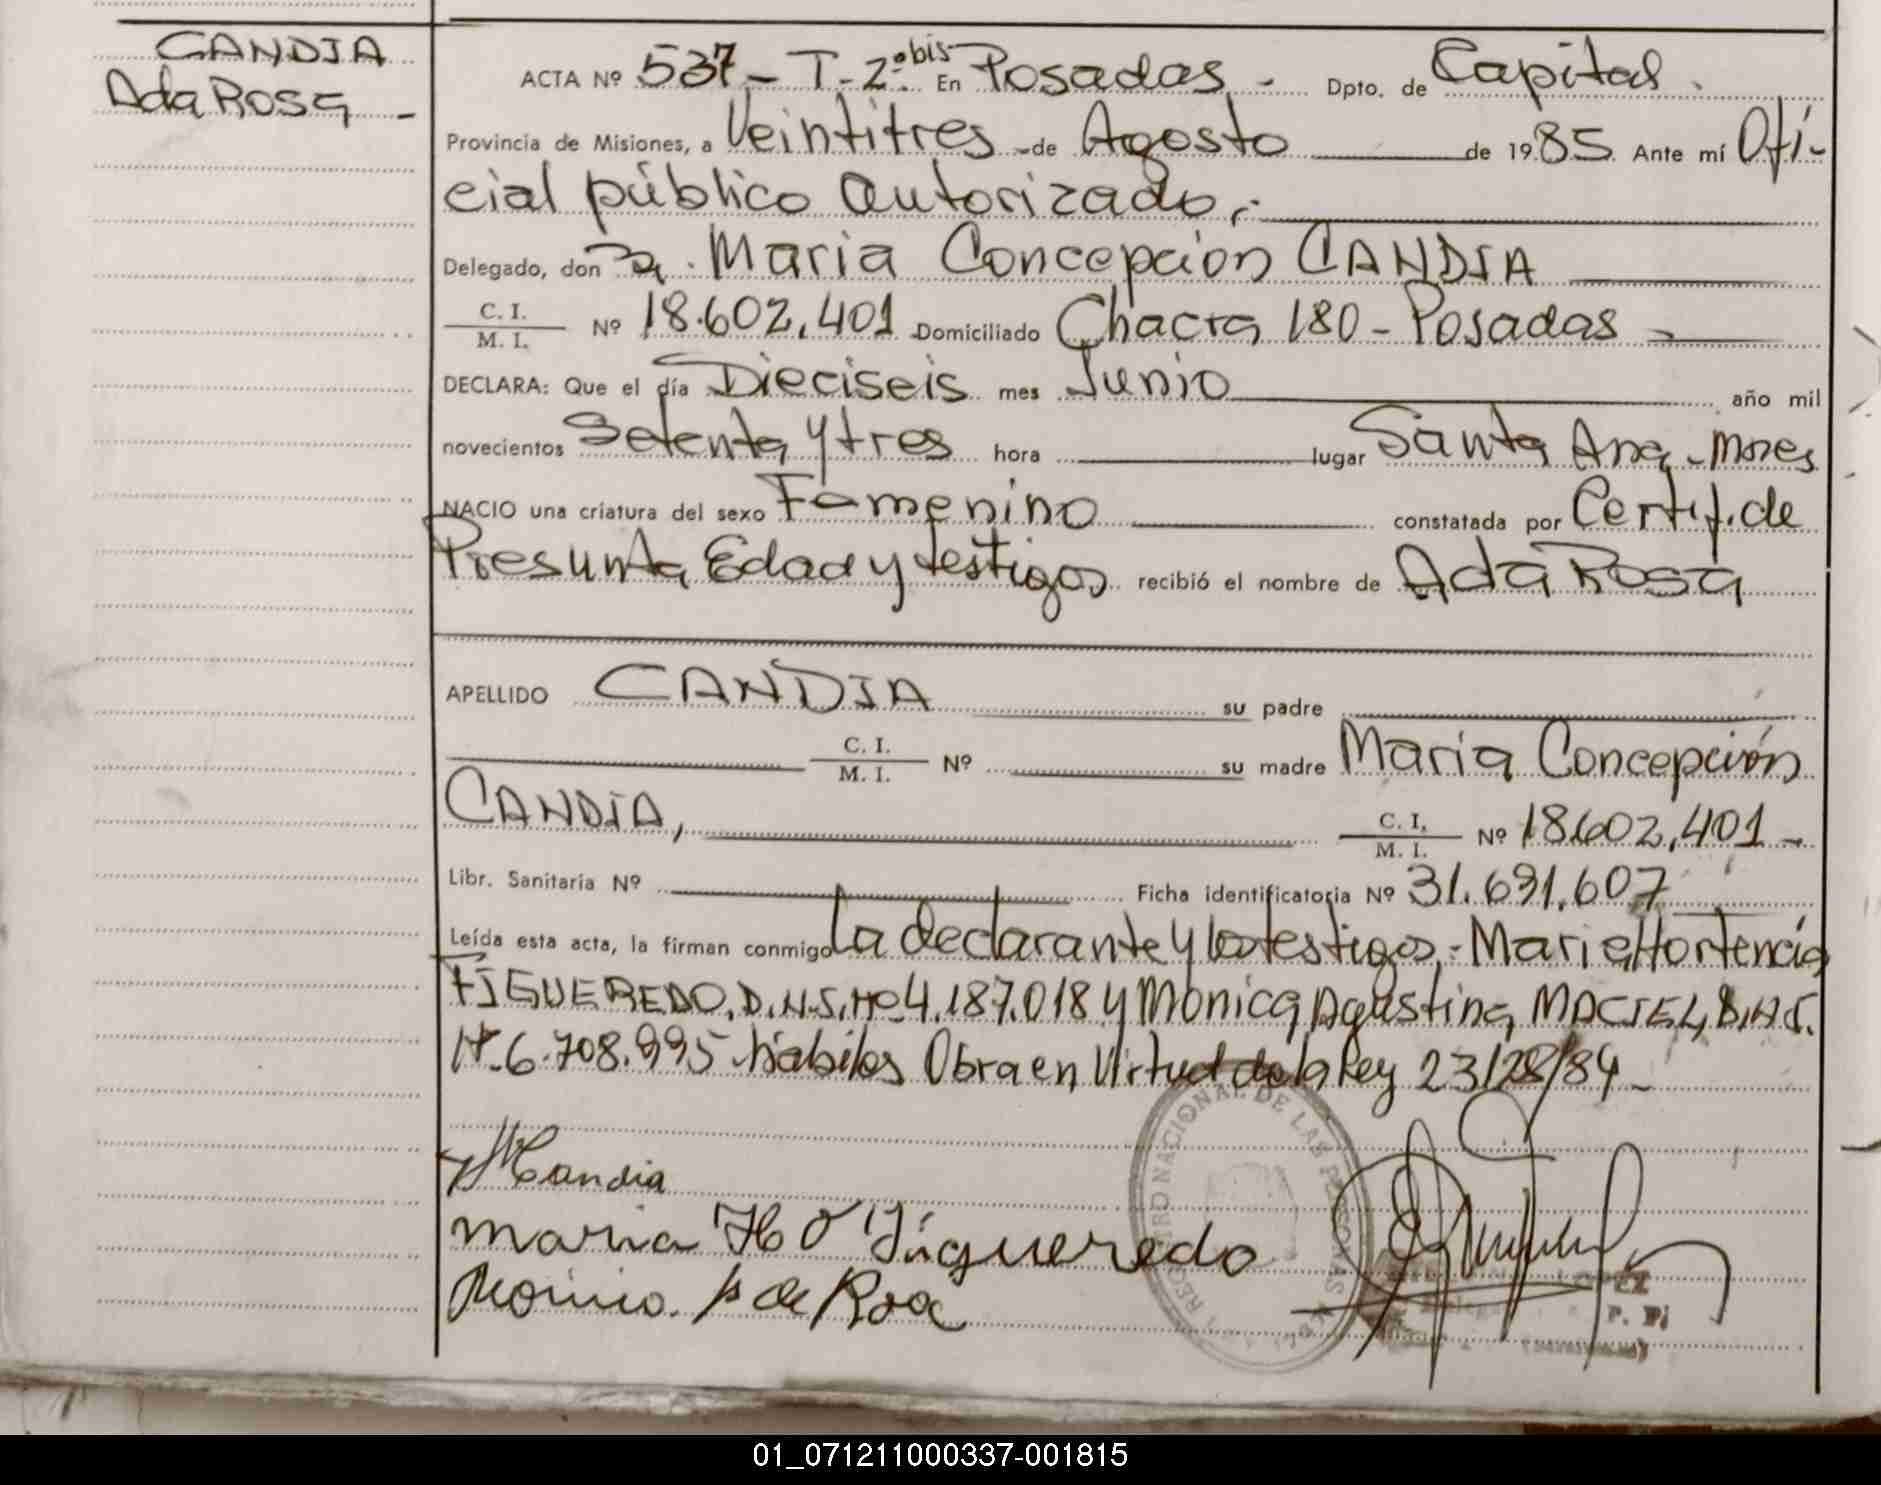 CANDIA
Ada Rosa -
ACTA Nº 537 - T - 2º bis - En Posadas - Dpto. de Capital.
Provincia de Misiones, a Veintitres de Agosto de 1985 Ante mí Ofi-
cial público autorizado,-
Delegado, don Da. Maria Concepción CANDIA
C. I.
M. I. Nº 18.602.401 Domiciliado Chacra 180 - Posadas -
DECLARA: Que el día Dieciseis mes Junio año mil
novecientos Setenta y tres hora lugar Santa Ana - Mnes
NACIO una criatura del sexo Femenino constatada por Certif. de
Presunta Edad y testigos recibió el nombre de Ada Rosa
APELLIDO CANDIA su padre
C. I.
M. I. Nº su madre Maria Concepción
CANDIA,
C. I.
M. I. Nº 18.602.401 -
Libr. Sanitaria Nº Ficha identificatoria Nº 31.691.607
Leída esta acta, la firman conmigo La declarante y los testigos,- Maria Hortencia
FIGUEREDO, D.N.I. Nº 4.187.018 y Mónica Agustina MACIEL, D.N.I.
Nº 6.708.995 hábiles Obra en Virtud de la Ley 23/28/84 -
M Candia
Maria H O Figueredo
Monica. de Roa
REGISTRO NACIONAL DE LAS PERSONAS
LOPEZ